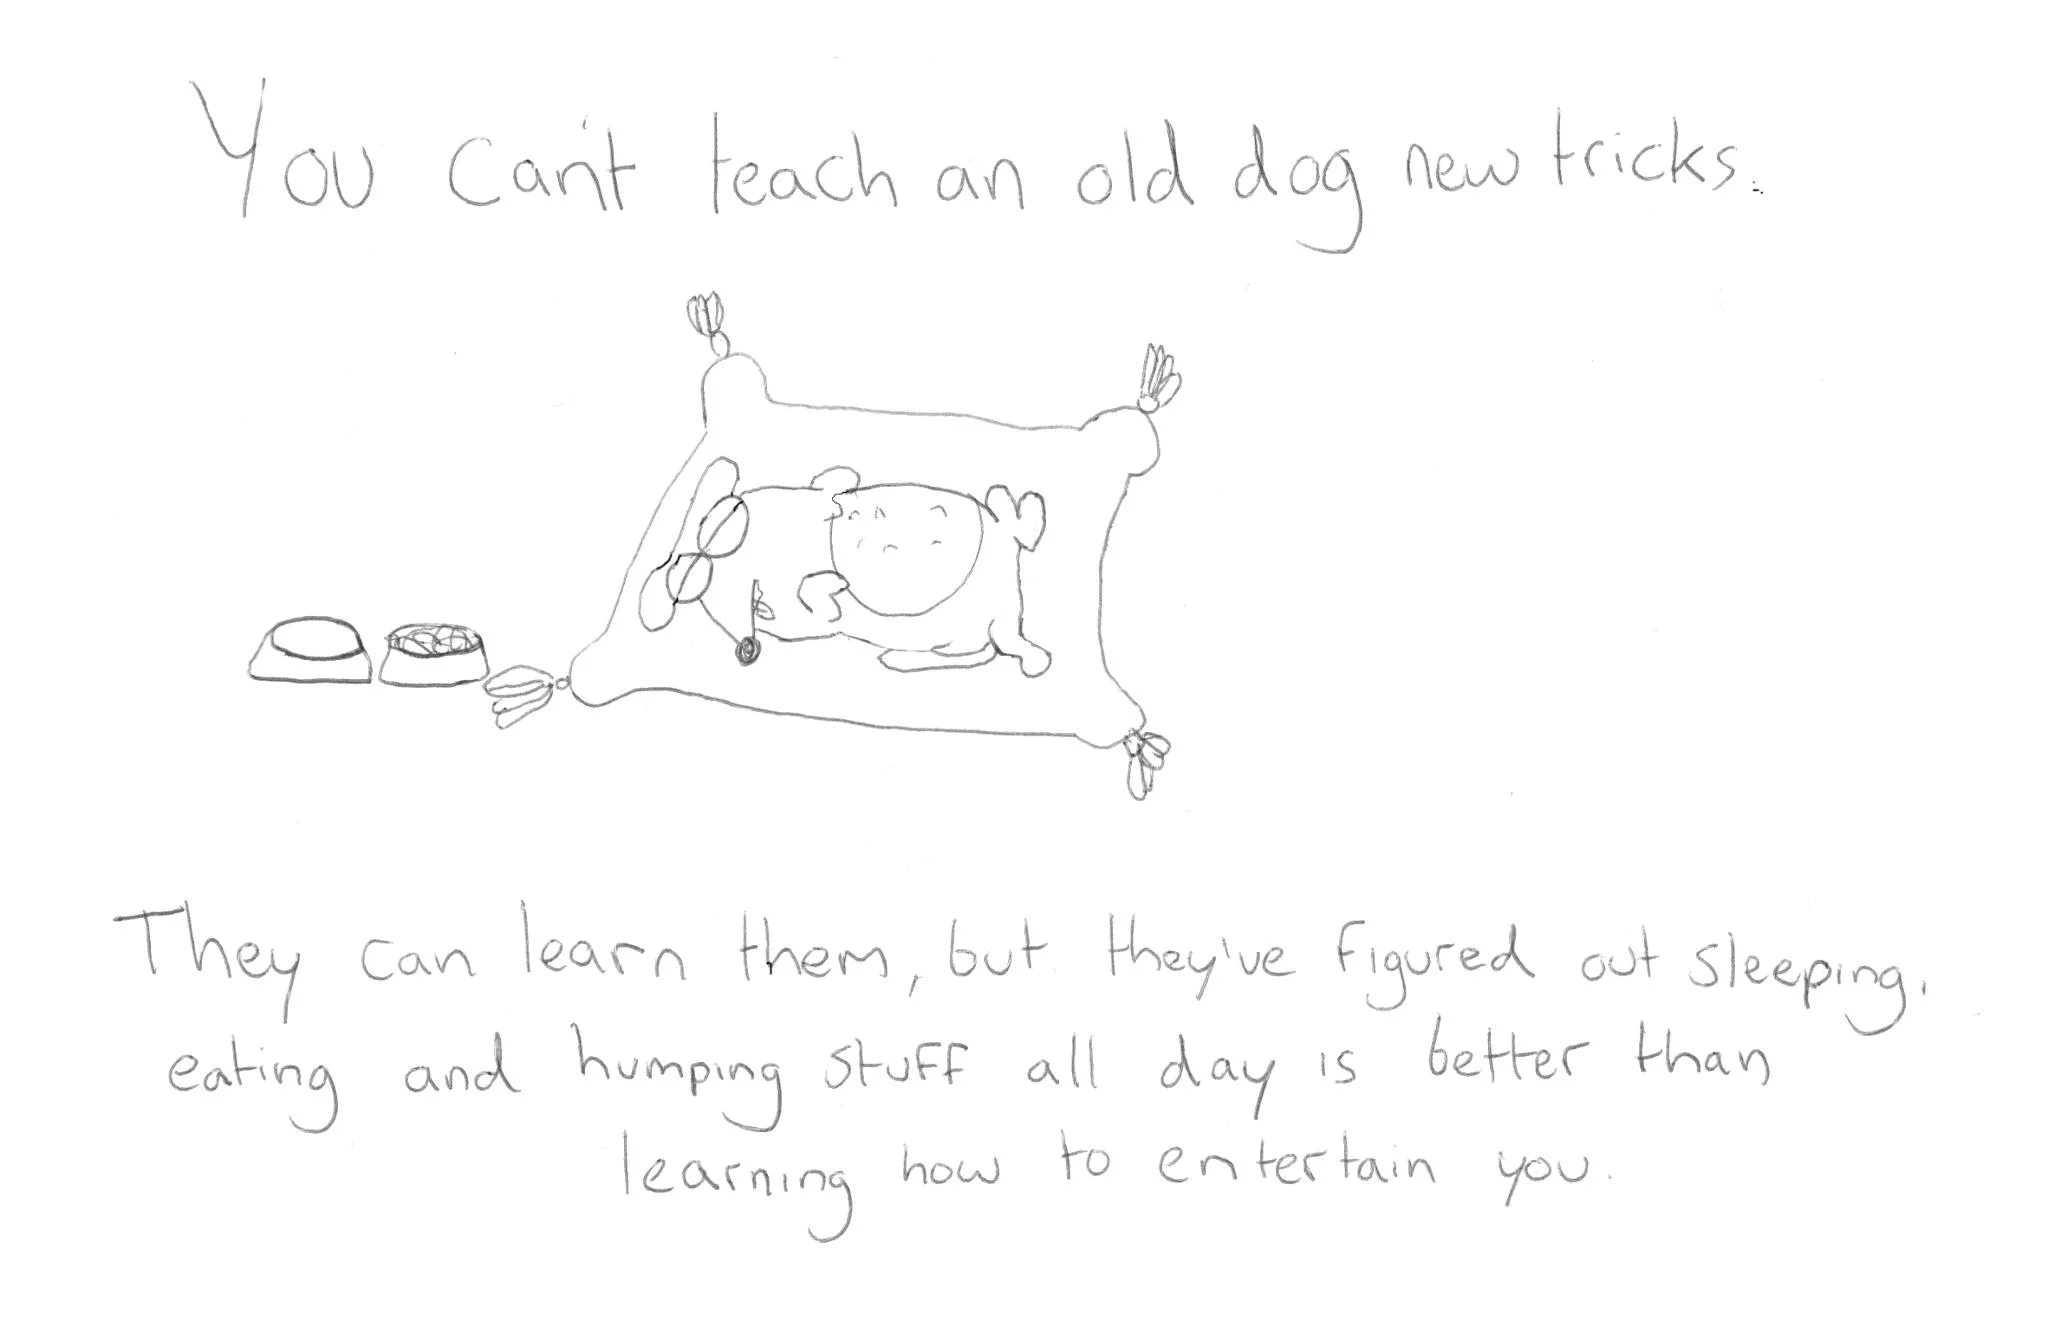 You can't teach an old dog new tricks.
They can learn them, but they've figured out sleeping,
eating and humping stuff all day is better than
learning how to entertain you.